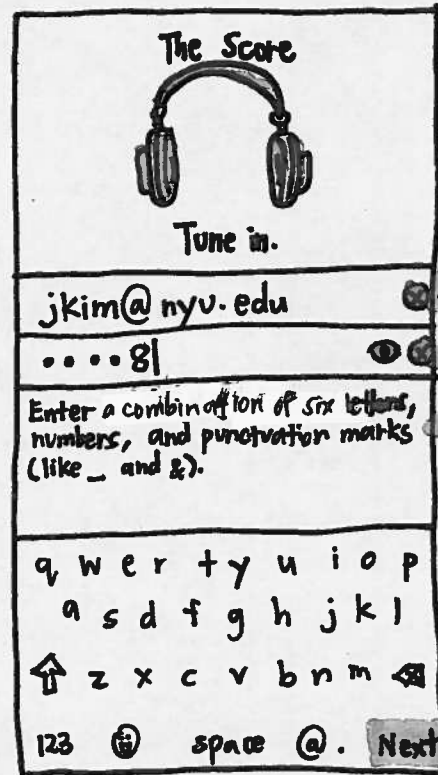 The Score
Tune in.
jkim@nyu.edu
••••8|
Enter a combination of six letters,
numbers, and punctuation marks
(like _ and &).
q w e r t y u i o p
a s d f g h j k l
z x c v b n m
123 space @ . Next